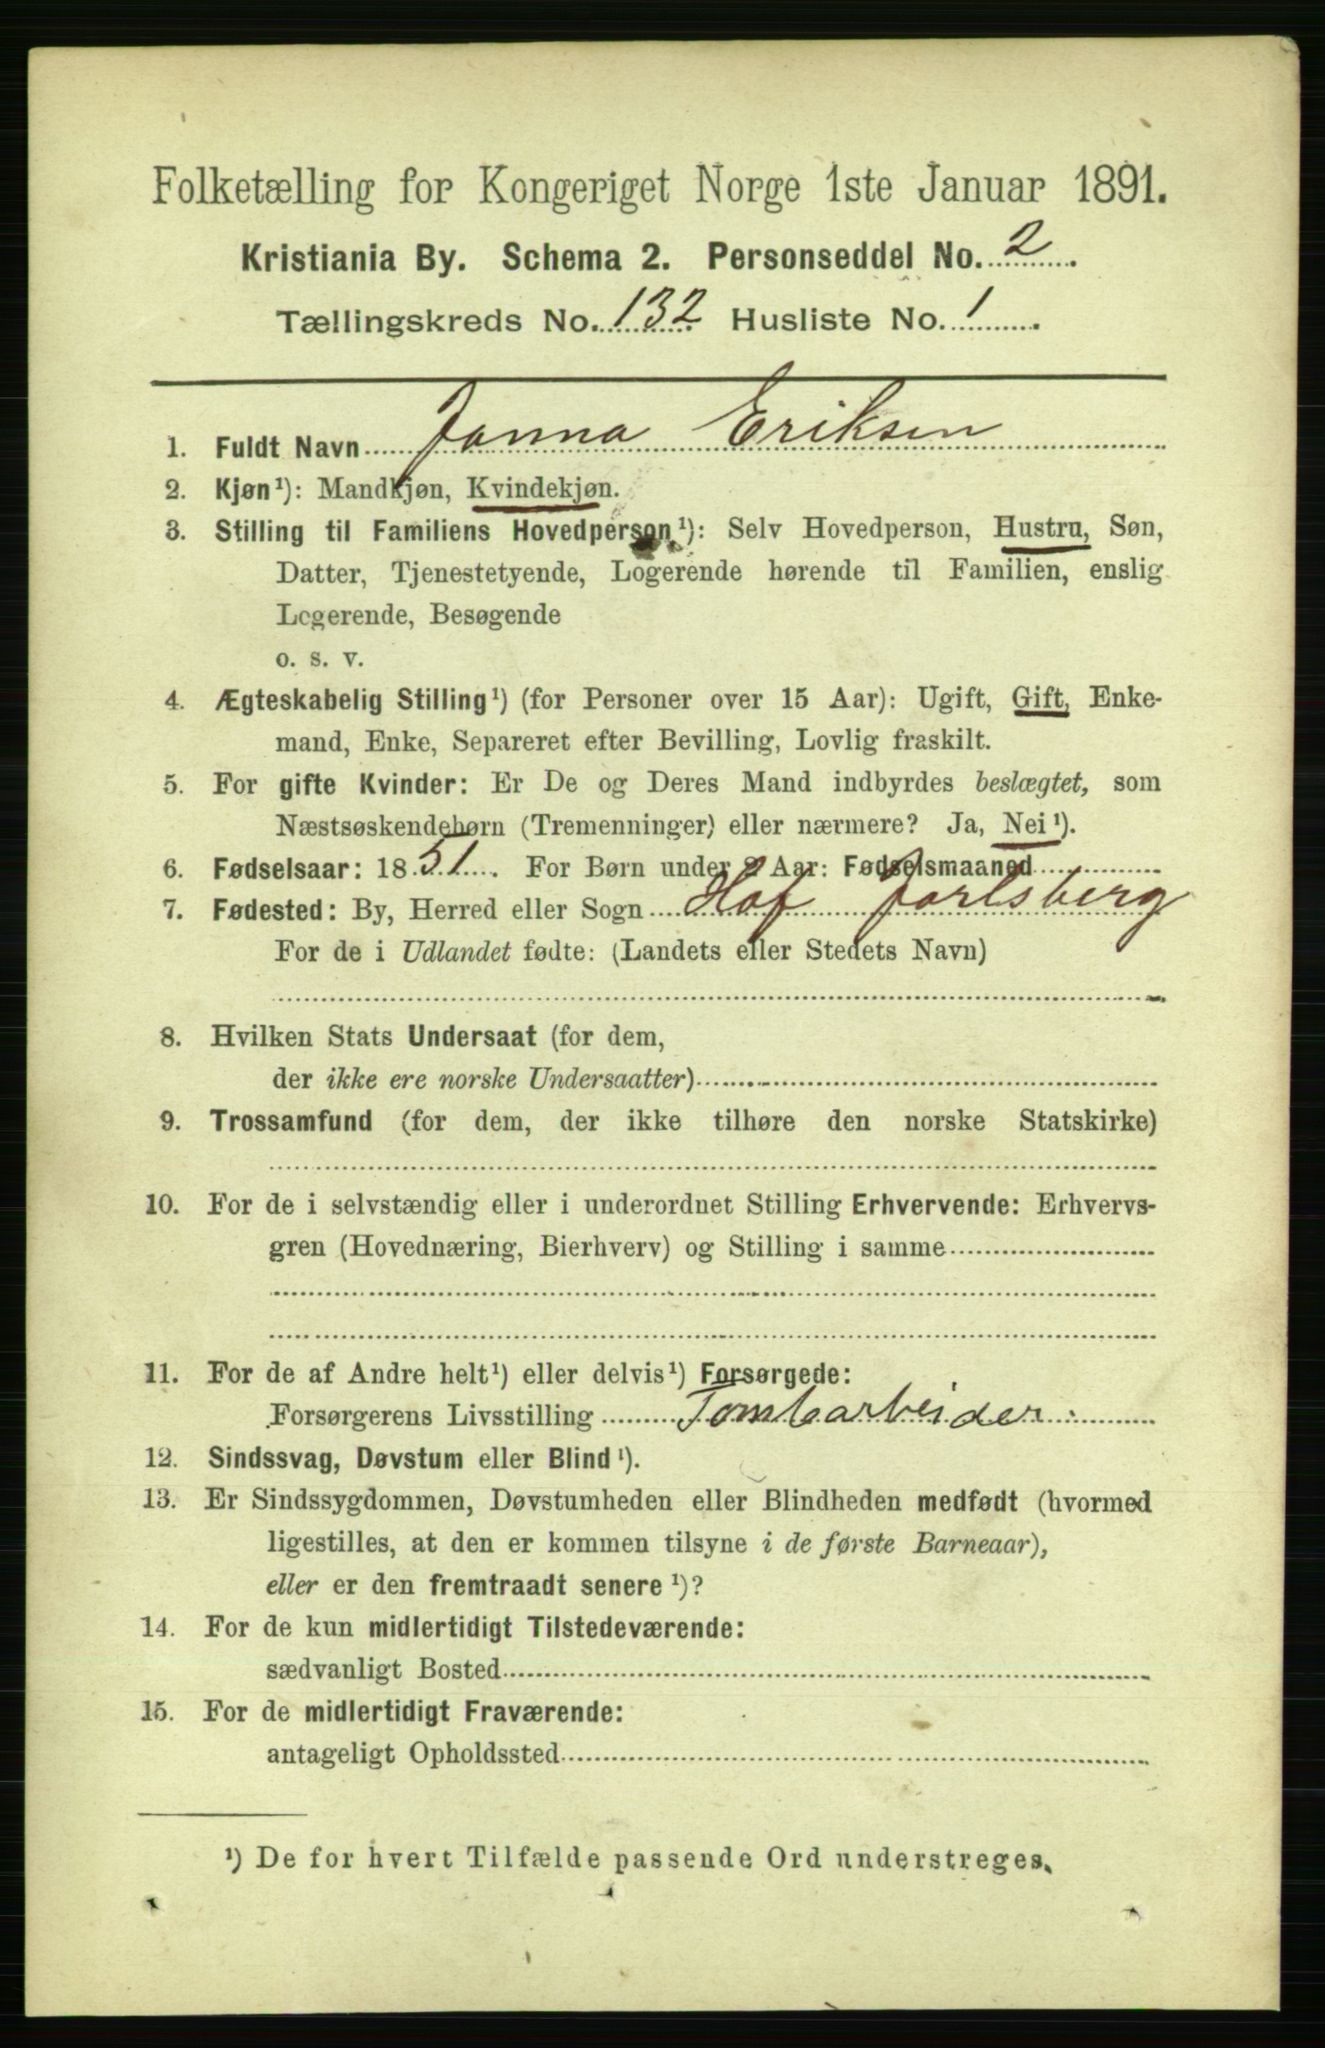 Folketælling for Kongeriget Norge 1ste Januar 1891.
Kristiania By. Schema 2. Personseddel No. 2
Tællingskreds No. 132 Husliste No. 1
1. Fuldt Navn Janna Eriksen
2. Kjøn¹): Mandkjøn, Kvindekjøn.
3. Stilling til Familiens Hovedperson¹): Selv Hovedperson, Hustru, Søn,
Datter, Tjenestetyende, Logerende hørende til Familien, enslig
Logerende, Besøgende
o. s. v.
4. Ægteskabelig Stilling¹) (for Personer over 15 Aar): Ugift, Gift, Enke-
mand, Enke, Separeret efter Bevilling, Lovlig fraskilt.
5. For gifte Kvinder: Er De og Deres Mand indbyrdes beslægtet, som
Næstsøskendebørn (Tremenninger) eller nærmere? Ja, Nei¹).
6. Fødselsaar: 1851. For Børn under 2 Aar: Fødselsmaaned
7. Fødested: By, Herred eller Sogn Hof Jarlsberg
For de i Udlandet fødte: (Landets eller Stedets Navn)
8. Hvilken Stats Undersaat (for dem,
der ikke ere norske Undersaatter)
9. Trossamfund (for dem, der ikke tilhøre den norske Statskirke)
10. For de i selvstændig eller i underordnet Stilling Erhvervende: Erhvervs-
gren (Hovednæring, Bierhverv) og Stilling i samme
11. For de af Andre helt¹) eller delvis¹) Forsørgede:
Forsørgerens Livsstilling Tomtearbeider
12. Sindssvag, Døvstum eller Blind¹).
13. Er Sindssygdommen, Døvstumheden eller Blindheden medfødt (hvormed
ligestilles, at den er kommen tilsyne i de første Barneaar),
eller er den fremtraadt senere¹)?
14. For de kun midlertidigt Tilstedeværende:
sædvanligt Bosted
15. For de midlertidigt Fraværende:
antageligt Opholdssted
¹) De for hvert Tilfælde passende Ord understreges.